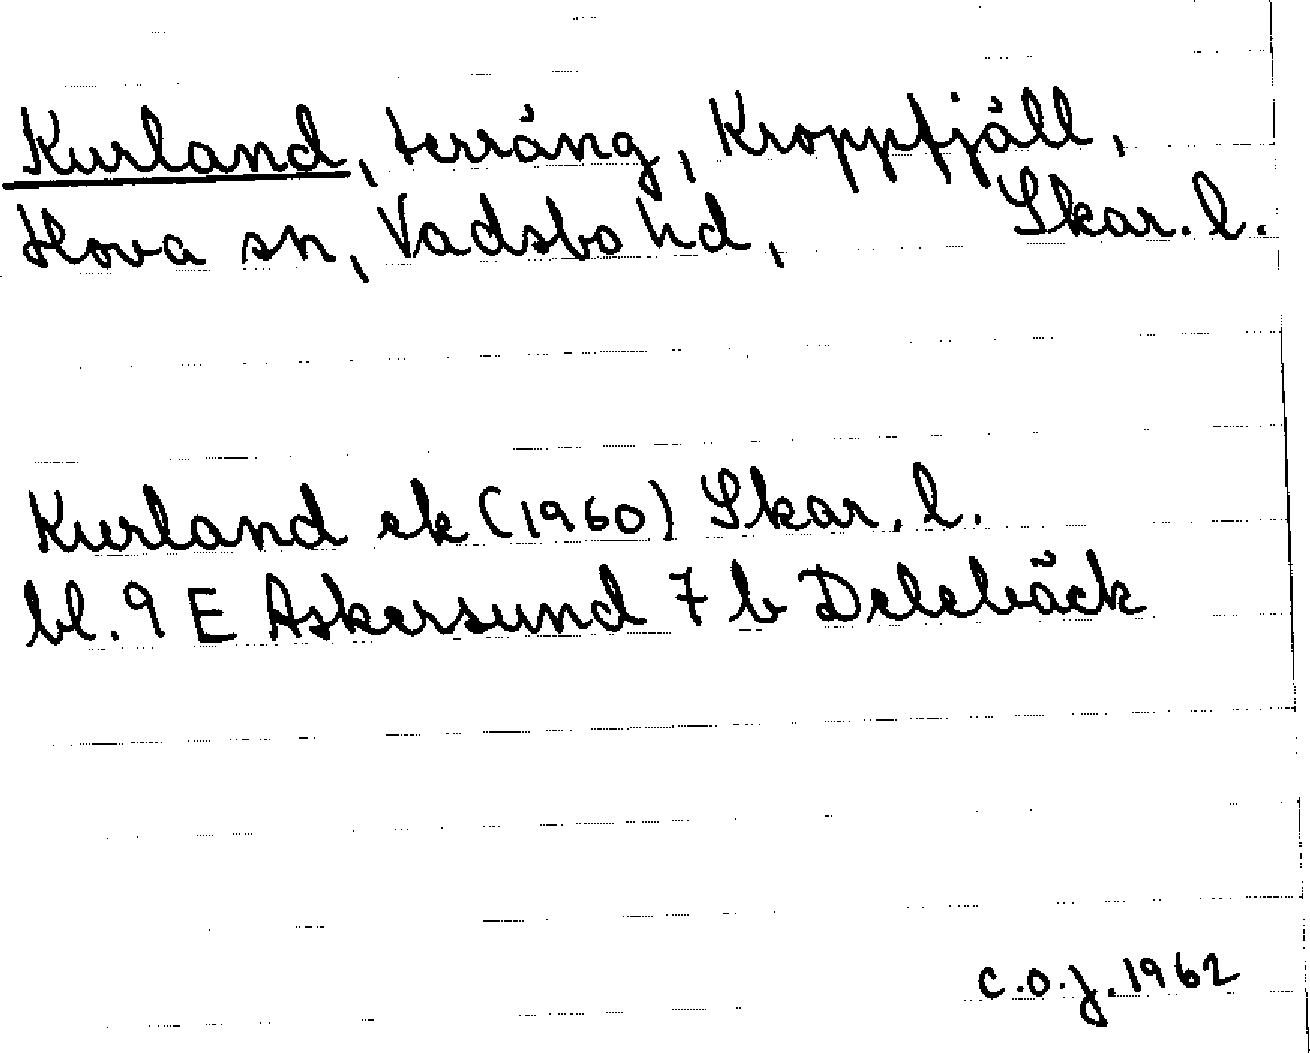 Kurland, terräng, Kroppfjäll,
Hova sn, Vadsbo hd, Skar. l.
Kurland ek (1960) Skar. l.
bl. 9 E Askersund 7 b Delebäck
C.O.J. 1962